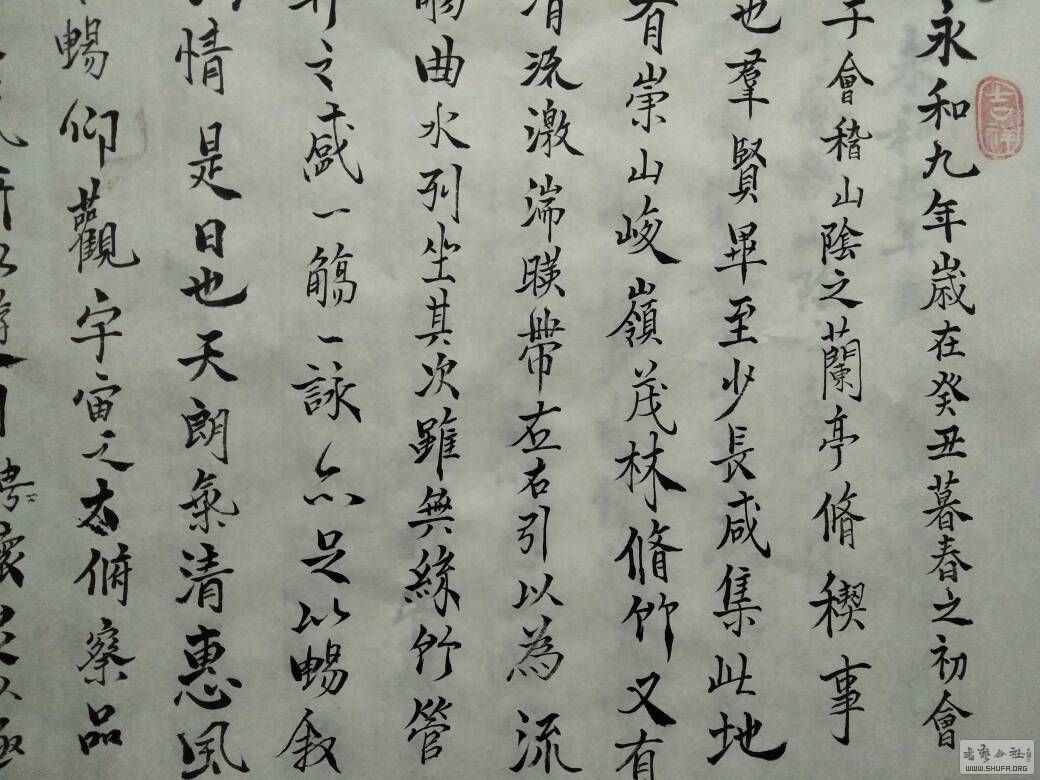 永和九年歲在癸丑暮春之初會
于會稽山陰之蘭亭脩稧事
也羣賢畢至少長咸集此地
有崇山峻嶺茂林脩竹又有
清流激湍暎帶左右引以為流
觴曲水列坐其次雖無絲竹管
之盛一觴一詠亦足以暢敘
情是日也天朗氣清惠風
暢仰觀宇宙之太俯察品
所以遊目騁懷足以極
吉祥
书艺公社
WWW.SHUFA.ORG